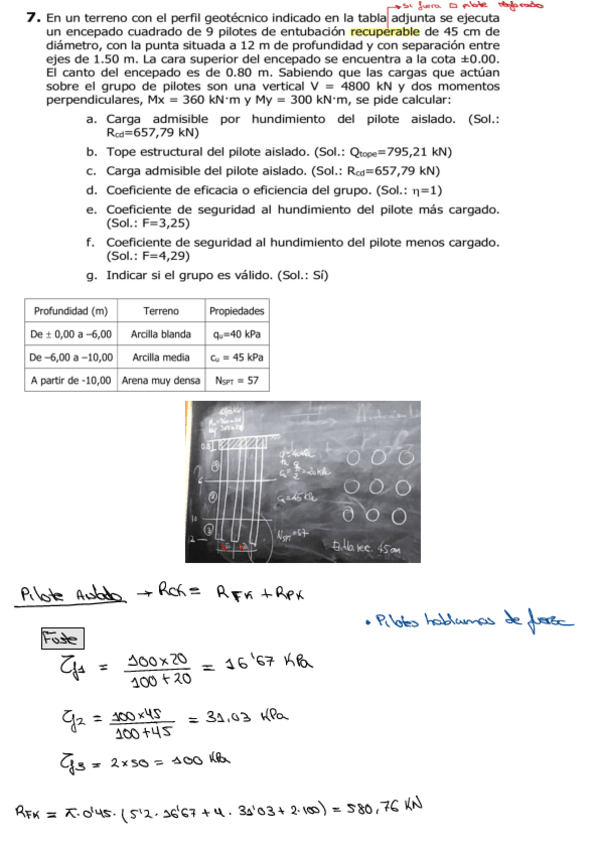 → Si fuera □ pilote
7. En un terreno con el perfil geotécnico indicado en la tabla adjunta se ejecuta
un encepado cuadrado de 9 pilotes de entubación recuperable de 45 cm de
diámetro, con la punta situada a 12 m de profundidad y con separación entre
ejes de 1.50 m. La cara superior del encepado se encuentra a la cota ±0.00.
El canto del encepado es de 0.80 m. Sabiendo que las cargas que actúan
sobre el grupo de pilotes son una vertical V = 4800 kN y dos momentos
perpendiculares, Mx = 360 kN·m y My = 300 kN·m, se pide calcular:
a. Carga admisible por hundimiento del pilote aislado. (Sol.:
Rcd=657,79 kN)
b. Tope estructural del pilote aislado. (Sol.: Qtope=795,21 kN)
c. Carga admisible del pilote aislado. (Sol.: Rcd=657,79 kN)
d. Coeficiente de eficacia o eficiencia del grupo. (Sol.: η=1)
e. Coeficiente de seguridad al hundimiento del pilote más cargado.
(Sol.: F=3,25)
f. Coeficiente de seguridad al hundimiento del pilote menos cargado.
(Sol.: F=4,29)
g. Indicar si el grupo es válido. (Sol.: Sí)
Profundidad (m) Terreno Propiedades
De ± 0,00 a –6,00 Arcilla blanda qu=40 kPa
De –6,00 a –10,00 Arcilla media cu = 45 kPa
A partir de -10,00 Arena muy densa NSPT = 57
NSPT=57
45cm
Pilote Aislado → Rck = RFK + RPK
• Pilotes hablamos de fuerza
Fuste
τf1 = 100x20 / 100+20 = 16'67 KPa
τf2 = 100x45 / 100+45 = 31,03 KPa
τf3 = 2x50 = 100 KPa
RFK = π·0'45·(5'2·16'67 + 4·31'03 + 2·100) = 580,76 KN